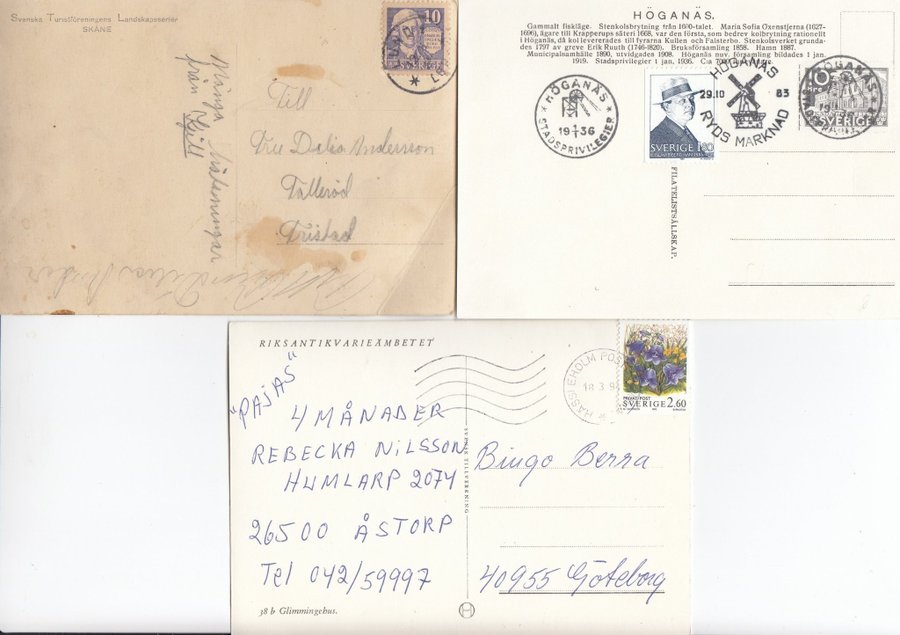 Svenska Turistföreningens Landskapsserier
SKÅNE
40
SVERIGE
Många hälsningar
från Kjell
Till
Delia Andersson
Tålleröd
HÖGANÄS.
Gammalt fiskläge. Stenkolsbrytning från 1600-talet. Maria Sofia Oxenstjerna (1627-
1696), ägare till Krapperups säteri 1668, var den första, som bedrev kolbrytning rationellt
i Höganäs, då kol levererades till fyrarna Kullen och Falsterbo. Stenkolsverket grunda-
des 1797 av greve Erik Ruuth (1746-1820). Bruksförsamling 1858. Hamn 1887.
Municipalsamhälle 1890, utvidgades 1908. Höganäs nuv. församling bildades 1 jan.
1919. Stadsprivilegier 1 jan. 1936. C:a
HÖGANÄS
19 1/1 36
STADSPRIVILEGIER
SVERIGE 1.80
HÖGANÄS
29.10 83
RYDS MARKNAD
10
HÖGANÄS
SVERIGE
FILATELISTSÄLLSKAP.
RIKSANTIKVARIEÄMBETET
"PAJAS"
4 MÅNADER
REBECKA NILSSON
HUMLARP 2074
26500 ÅSTORP
Tel 042/59997
38 b Glimmingehus.
SVENSK TILLVERKNING
HÄSSLEHOLM POST
18 3 9
PRIVATPOST
SVERIGE 2.60
Bingo Berra
40955 Göteborg